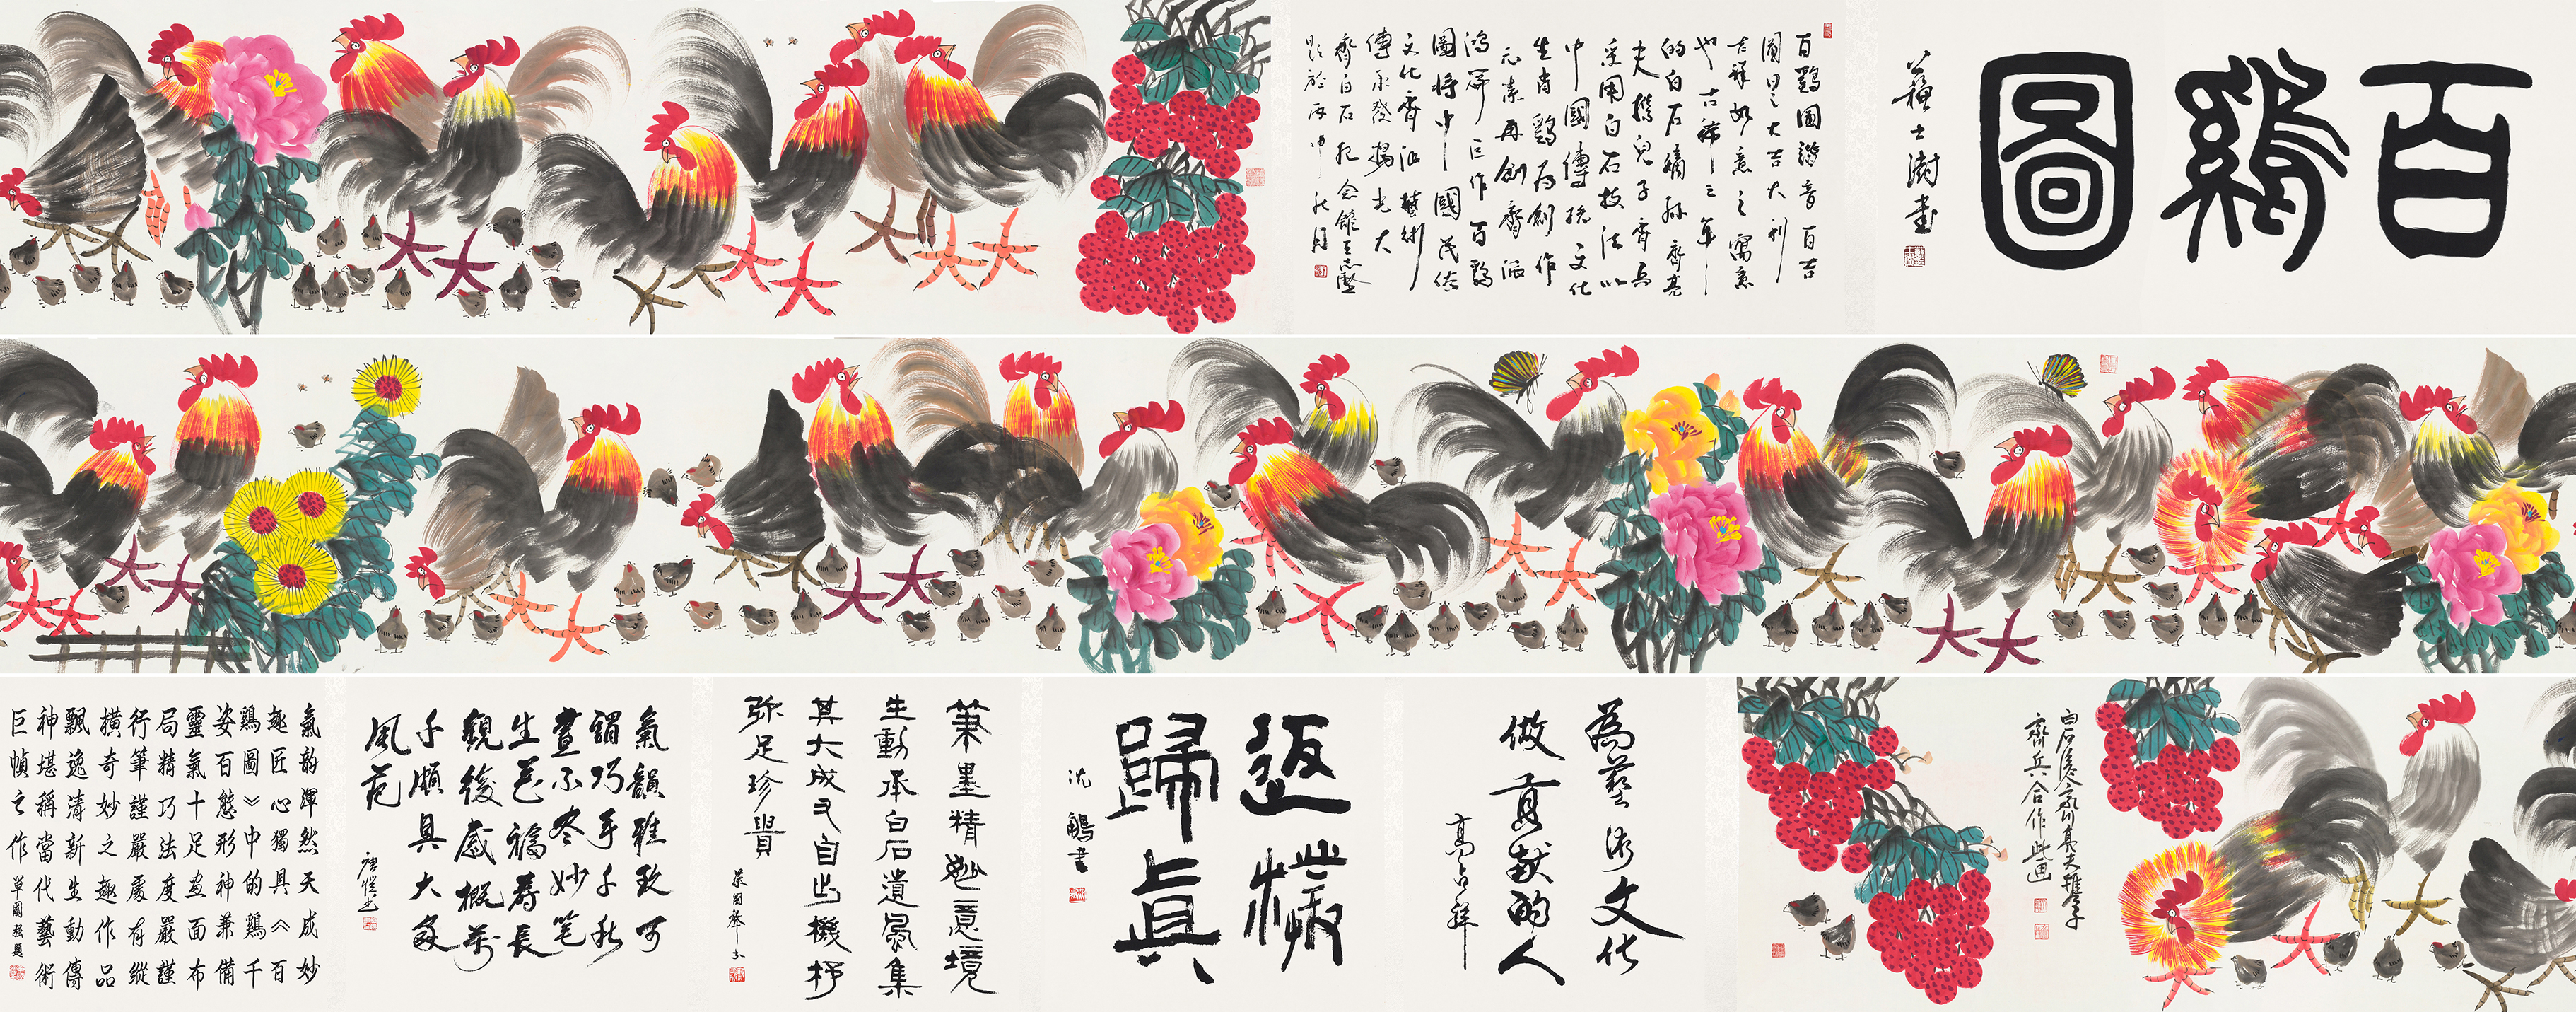 百鷄圖
蘇士澍書
百鷄圖諧音百吉
圖呈大吉大利
吉祥如意之寓意
也古稀之年
的白石嫡孫齊亮
夫携兒子齊兵
采用白石技法以
中國傳統文化
生肖鷄爲創作
元素再創齊派
鴻篇巨作百鷄
圖將中國民俗
文化齊派藝術
傳承發揚光大
齊白石紀念館王志堅
題於丙申秋月
白石後人齊亮夫携子
齊兵合作此画
為藝術文化
做貢献的人
高占祥
返樸
歸真
沈鵬書
筆墨精妙意境
生動承白石遺風集
其大成又自出機杼
弥足珍貴
氣韻雅致可
謂巧手千秋
畫不盡妙笔
生花福壽長
觀後感概萬
千頗具大家
風范
氣韵渾然天成妙
趣匠心獨具《百
鷄圖》中的鷄千
姿百態形神兼備
靈氣十足画面布
局精巧法度嚴謹
行筆謹嚴處有縱
橫奇妙之趣作品
飄逸清新生動傳
神堪稱當代藝術
巨幀之作
單國强題